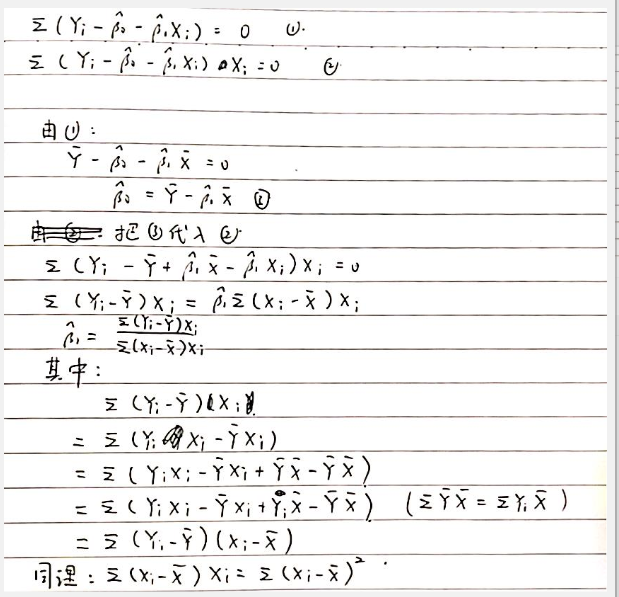 Σ(Yᵢ - β̂₀ - β̂₁Xᵢ) = 0 ①.
Σ(Yᵢ - β̂₀ - β̂₁Xᵢ)Xᵢ = 0 ②
由①:
Ȳ - β̂₀ - β̂₁X̄ = 0
β̂₀ = Ȳ - β̂₁X̄ ③
把③代入②
Σ(Yᵢ - Ȳ + β̂₁X̄ - β̂₁Xᵢ)Xᵢ = 0
Σ(Yᵢ - Ȳ)Xᵢ = β̂₁Σ(Xᵢ - X̄)Xᵢ
β̂₁ = Σ(Yᵢ - Ȳ)Xᵢ / Σ(Xᵢ - X̄)Xᵢ
其中:
Σ(Yᵢ - Ȳ)Xᵢ
= Σ(YᵢXᵢ - ȲXᵢ)
= Σ(YᵢXᵢ - ȲXᵢ + ȲX̄ - ȲX̄)
= Σ(YᵢXᵢ - ȲXᵢ + YᵢX̄ - ȲX̄) (ΣȲX̄ = ΣYᵢX̄)
= Σ(Yᵢ - Ȳ)(Xᵢ - X̄)
同理: Σ(Xᵢ - X̄)Xᵢ = Σ(Xᵢ - X̄)²